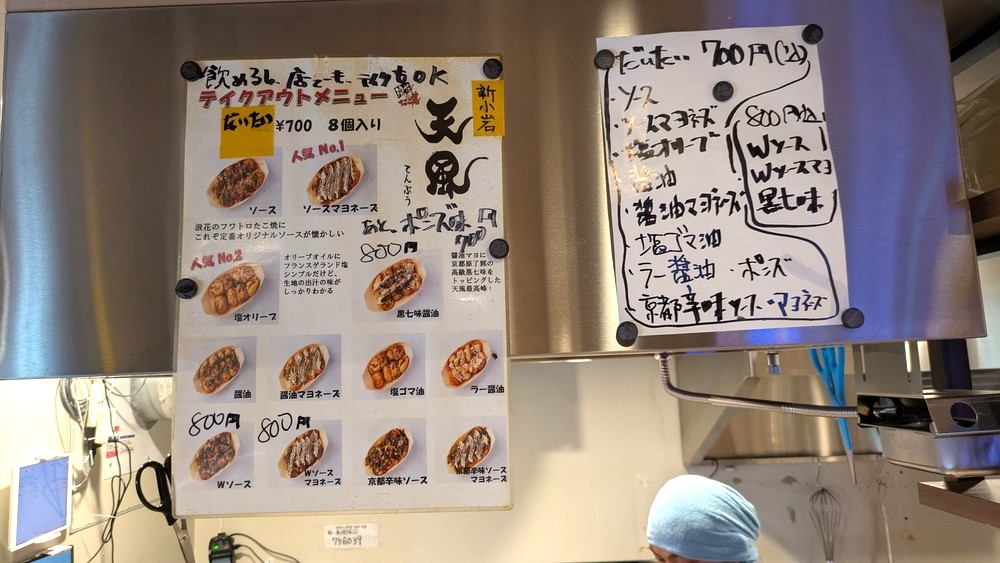 飲めるし、店でも、テイクもOK
テイクアウトメニュー
新小岩
だいたい
¥700 8個入り
天風
てんぷう
人気 No.1
ソース
ソースマヨネーズ
浪花のフワトロたこ焼に
これぞ定番オリジナルソースが懐かしい
あと、ポンズ味
700円
人気 No.2
オリーブオイルに
フランスゲランド塩
シンプルだけど、
生地の出汁の味が
しっかりわかる
塩オリーブ
800円
黒七味醤油
醤油マヨに
京都原了郭の
高級黒七味を
トッピングした
天風最高峰!
醤油
醤油マヨネーズ
塩ゴマ油
ラー醤油
800円
Wソース
800円
Wソース
マヨネーズ
京都辛味ソース
京都辛味ソース
マヨネーズ
だいたい 700円(込)
・ソース
・ソースマヨネズ
・塩オリーブ
・醤油
・醤油マヨネーズ
・塩ゴマ油
・ラー醤油 ・ポンズ
・京都辛味ソース・マヨネズ
800円込
Wソース
Wソースマヨ
黒七味
738039